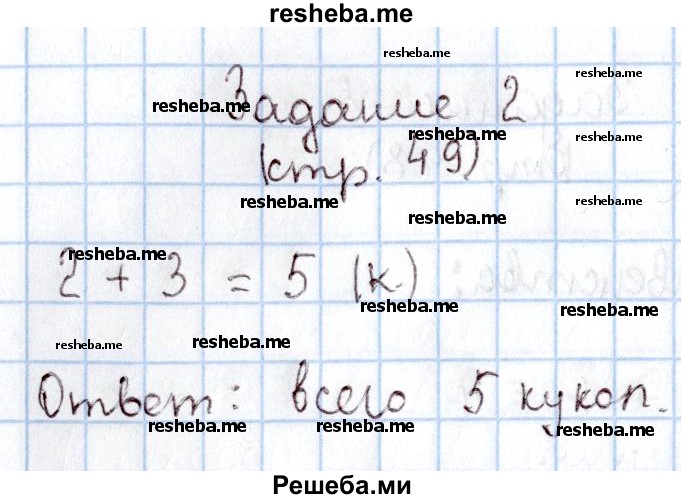 resheba.me
resheba.me
resheba.me
resheba.me
Задание 2
resheba.me
resheba.me
(стр. 49)
resheba.me
resheba.me
resheba.me
2 + 3 = 5 (к)
resheba.me
resheba.me
resheba.me
resheba.me
Ответ: всего 5 кукол.
resheba.me
resheba.me
resheba.me
Решеба.ми